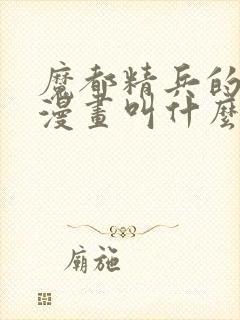 魔都精兵的
漫畫叫什麼
廟施